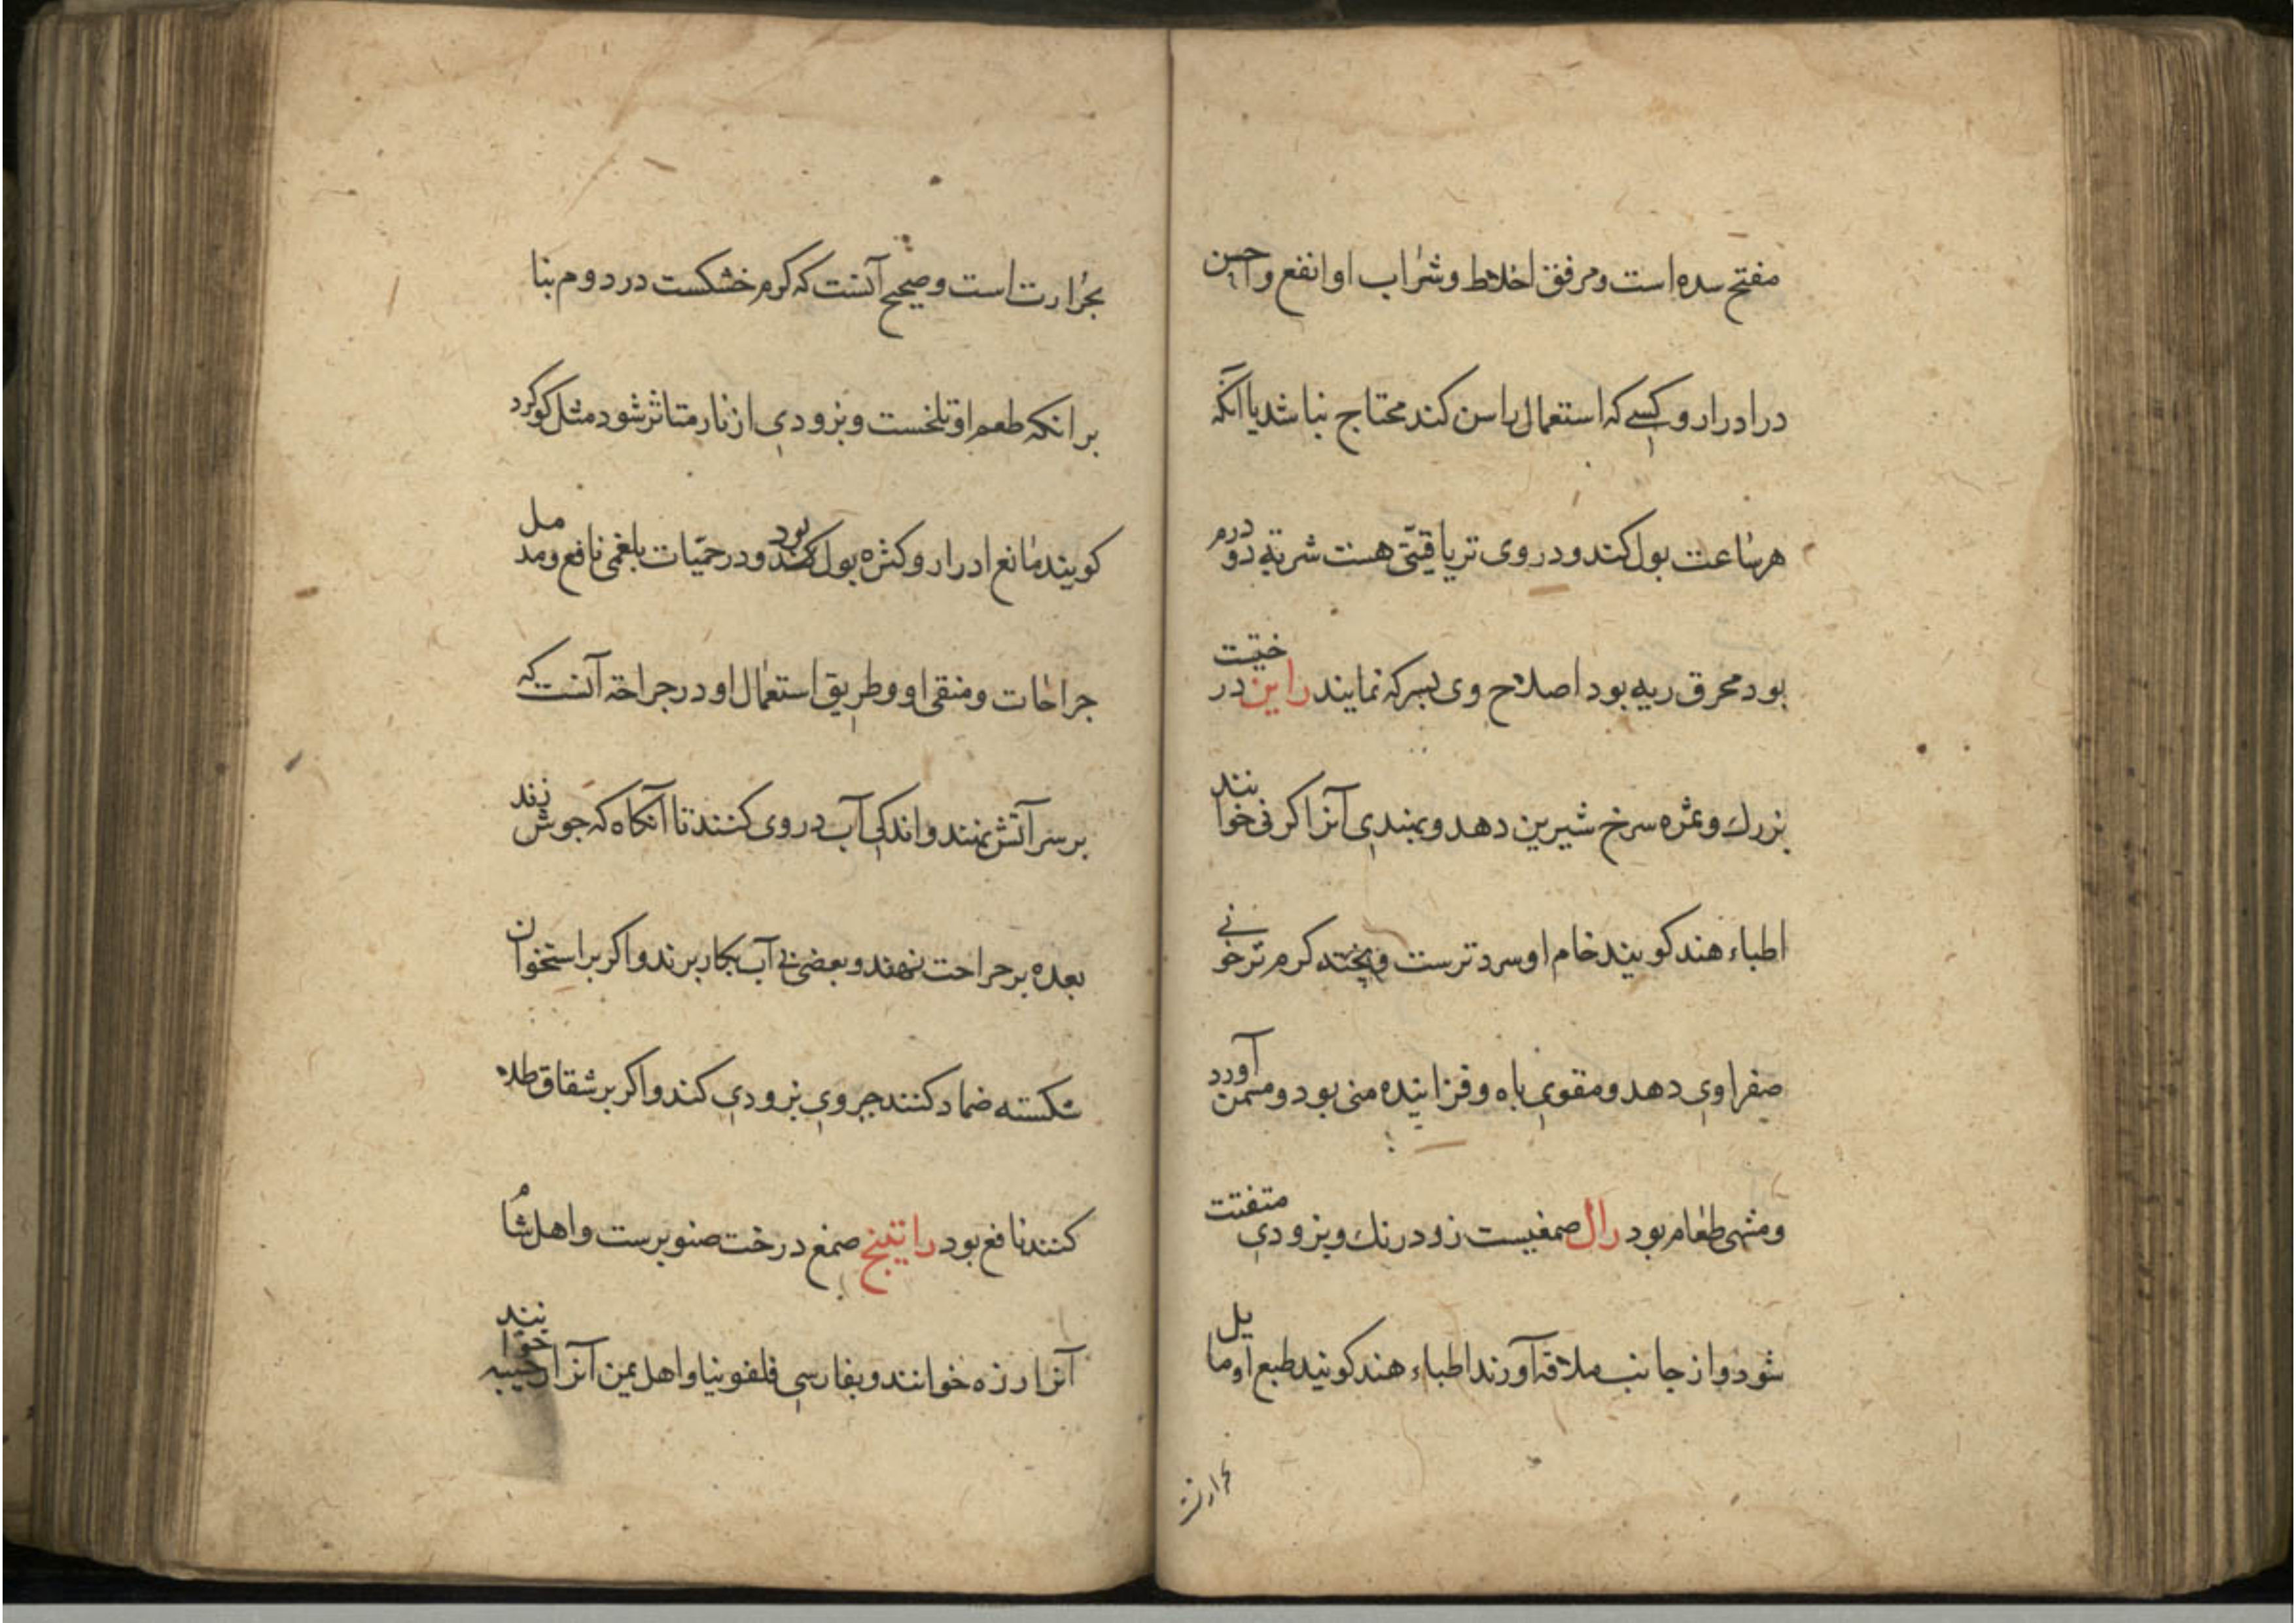 مفتح سده است و مرفق اخلاط و شراب او انفع و احسن
در ادرار و کسے که استعمال راسن کند محتاج نباشد یا آنکه
هر ساعت بول کند و در وی تریاقیتی هست شربتے دو درم
بود محرق ریه بود اصلاح وی بسرکه نمایند راین درختیست
بزرك و ثمره سرخ شیرین دهد و بهندی آنرا کرنی خوانند
اطباء هند کویند خام او سرد ترست و پخته کرم تر خونے
صفراوی دهد و مقوی باه و فزاینده منی بود و مسمن آورد
و مشهی طعام بود رال صمغیست زود رنك و بزودی متفتت
شود و از جانب ملاقه آورند اطباء هند کویند طبع او مایل
بحرارتست
بحرارت است و صحیح آنست که کرم خشکست در دوم بنا
بر انکه طعم او تلخست و بزودی از نار متاثر شود مثل کوکرد
کویند مانع ادرار و کثره بول بود و در حمّیات بلغمی نافع و مدمل
جراحات و منقی او و طریق استعمال او در جراحة آنست که
بر سر آتش نهند و اندکی آب در وی کنند تا آنکاه که جوش زند
بعده بر جراحت نهند و بعضی بے آب بکار برند و اکر بر استخوان
شکسته ضماد کنند جبر وی بزودی کند و اکر بر شقاق طلاء
کنند نافع بود راتینج صمغ درخت صنوبرست و اهل شام
آنرا رزه خوانند و بفارسی فلفونیا و اهل یمن آنرا خوانند